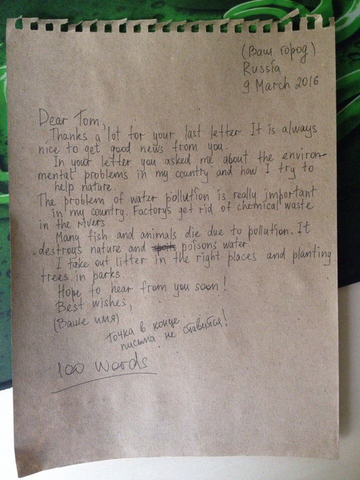 (Ваш город)
Russia
9 March 2016
Dear Tom,
Thanks a lot for your last letter. It is always
nice to get good news from you.
In your letter you asked me about the environ-
mental problems in my country and how I try to
help nature.
The problem of water pollution is really important
in my country. Factorys get rid of chemical waste
in the rivers.
Many fish and animals die due to pollution. It
destroys nature and poisons water.
I take out litter in the right places and planting
trees in parks.
Hope to hear from you soon!
Best wishes,
(Ваше имя)
Точка в конце
письма не ставится!
100 words